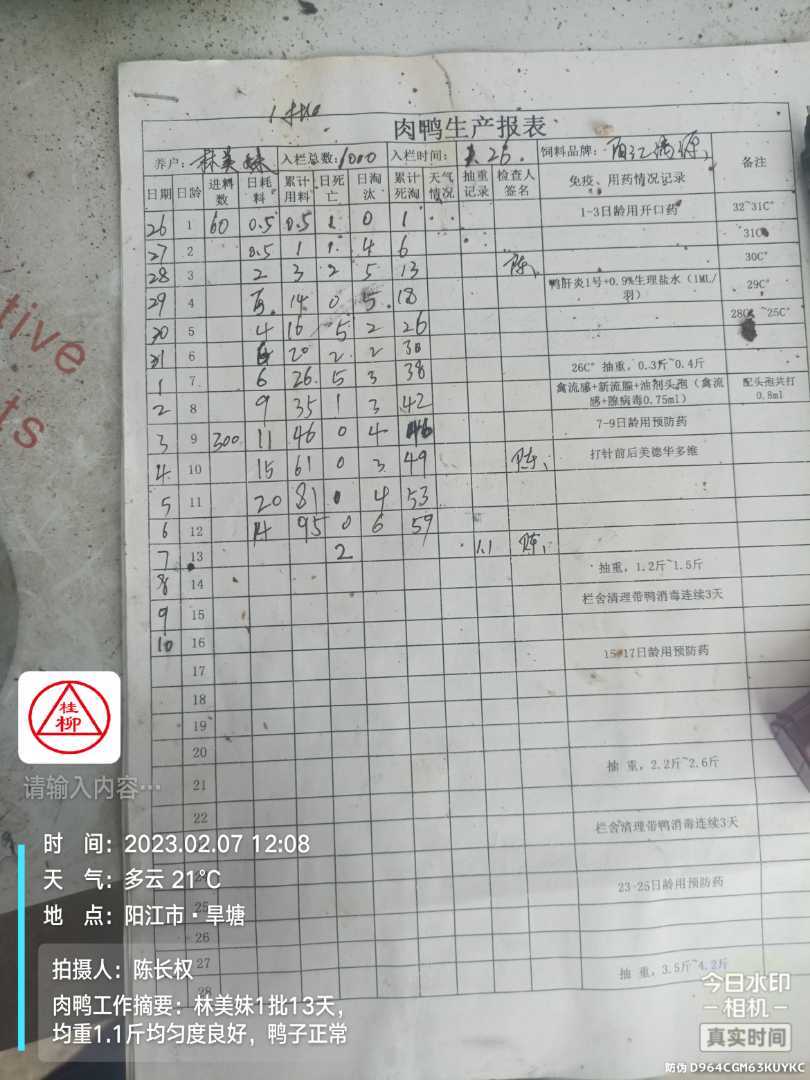 1批
肉鸭生产报表
养户: 林美妹 入栏总数: 1000 入栏时间: 26. 饲料品牌: 阳江 备注
日期 日龄 进料数 日耗料 累计用料 日死亡 日淘汰 累计死淘 天气情况 抽重记录 检查人签名 免疫、用药情况记录
26 1 60 0.5 0.5 1 0 1 1-3日龄用开口药 32~31C°
27 2 0.5 1 1 4 6 31C°
28 3 2 3 2 5 13 陈 30C°
29 4 14 0 5 18 鸭肝炎1号+0.9%生理盐水（1ML/羽） 29C°
30 5 4 16 5 2 26 28C° ~25C°
31 6 20 2 2 30
1 7 6 26 5 3 38 26C° 抽重，0.3斤~0.4斤
2 8 9 35 1 3 42 禽流感+新流腺+油剂头孢（禽流感+腺病毒0.75ml） 配头孢共打0.8ml
3 9 300 11 46 0 4 46 7-9日龄用预防药
4 10 15 61 0 3 49 陈 打针前后美德华多维
5 11 20 81 0 4 53
6 12 14 95 0 6 59
7 13 2 1.1 陈 抽重，1.2斤~1.5斤
8 14
9 15 栏舍清理带鸭消毒连续3天
10 16
17 15-17日龄用预防药
18
19
20
21 抽 重，2.2斤~2.6斤
22
栏舍清理带鸭消毒连续3天
23-25日龄用预防药
25
26
27
28 抽 重，3.5斤~4.2斤
tive
ts
桂
柳
请输入内容…
时 间：2023.02.07 12:08
天 气：多云 21℃
地 点：阳江市·旱塘
拍摄人：陈长权
肉鸭工作摘要：林美妹1批13天，
均重1.1斤均匀度良好，鸭子正常
今日水印
相机
真实时间
防伪 D964CGM63KUYKC